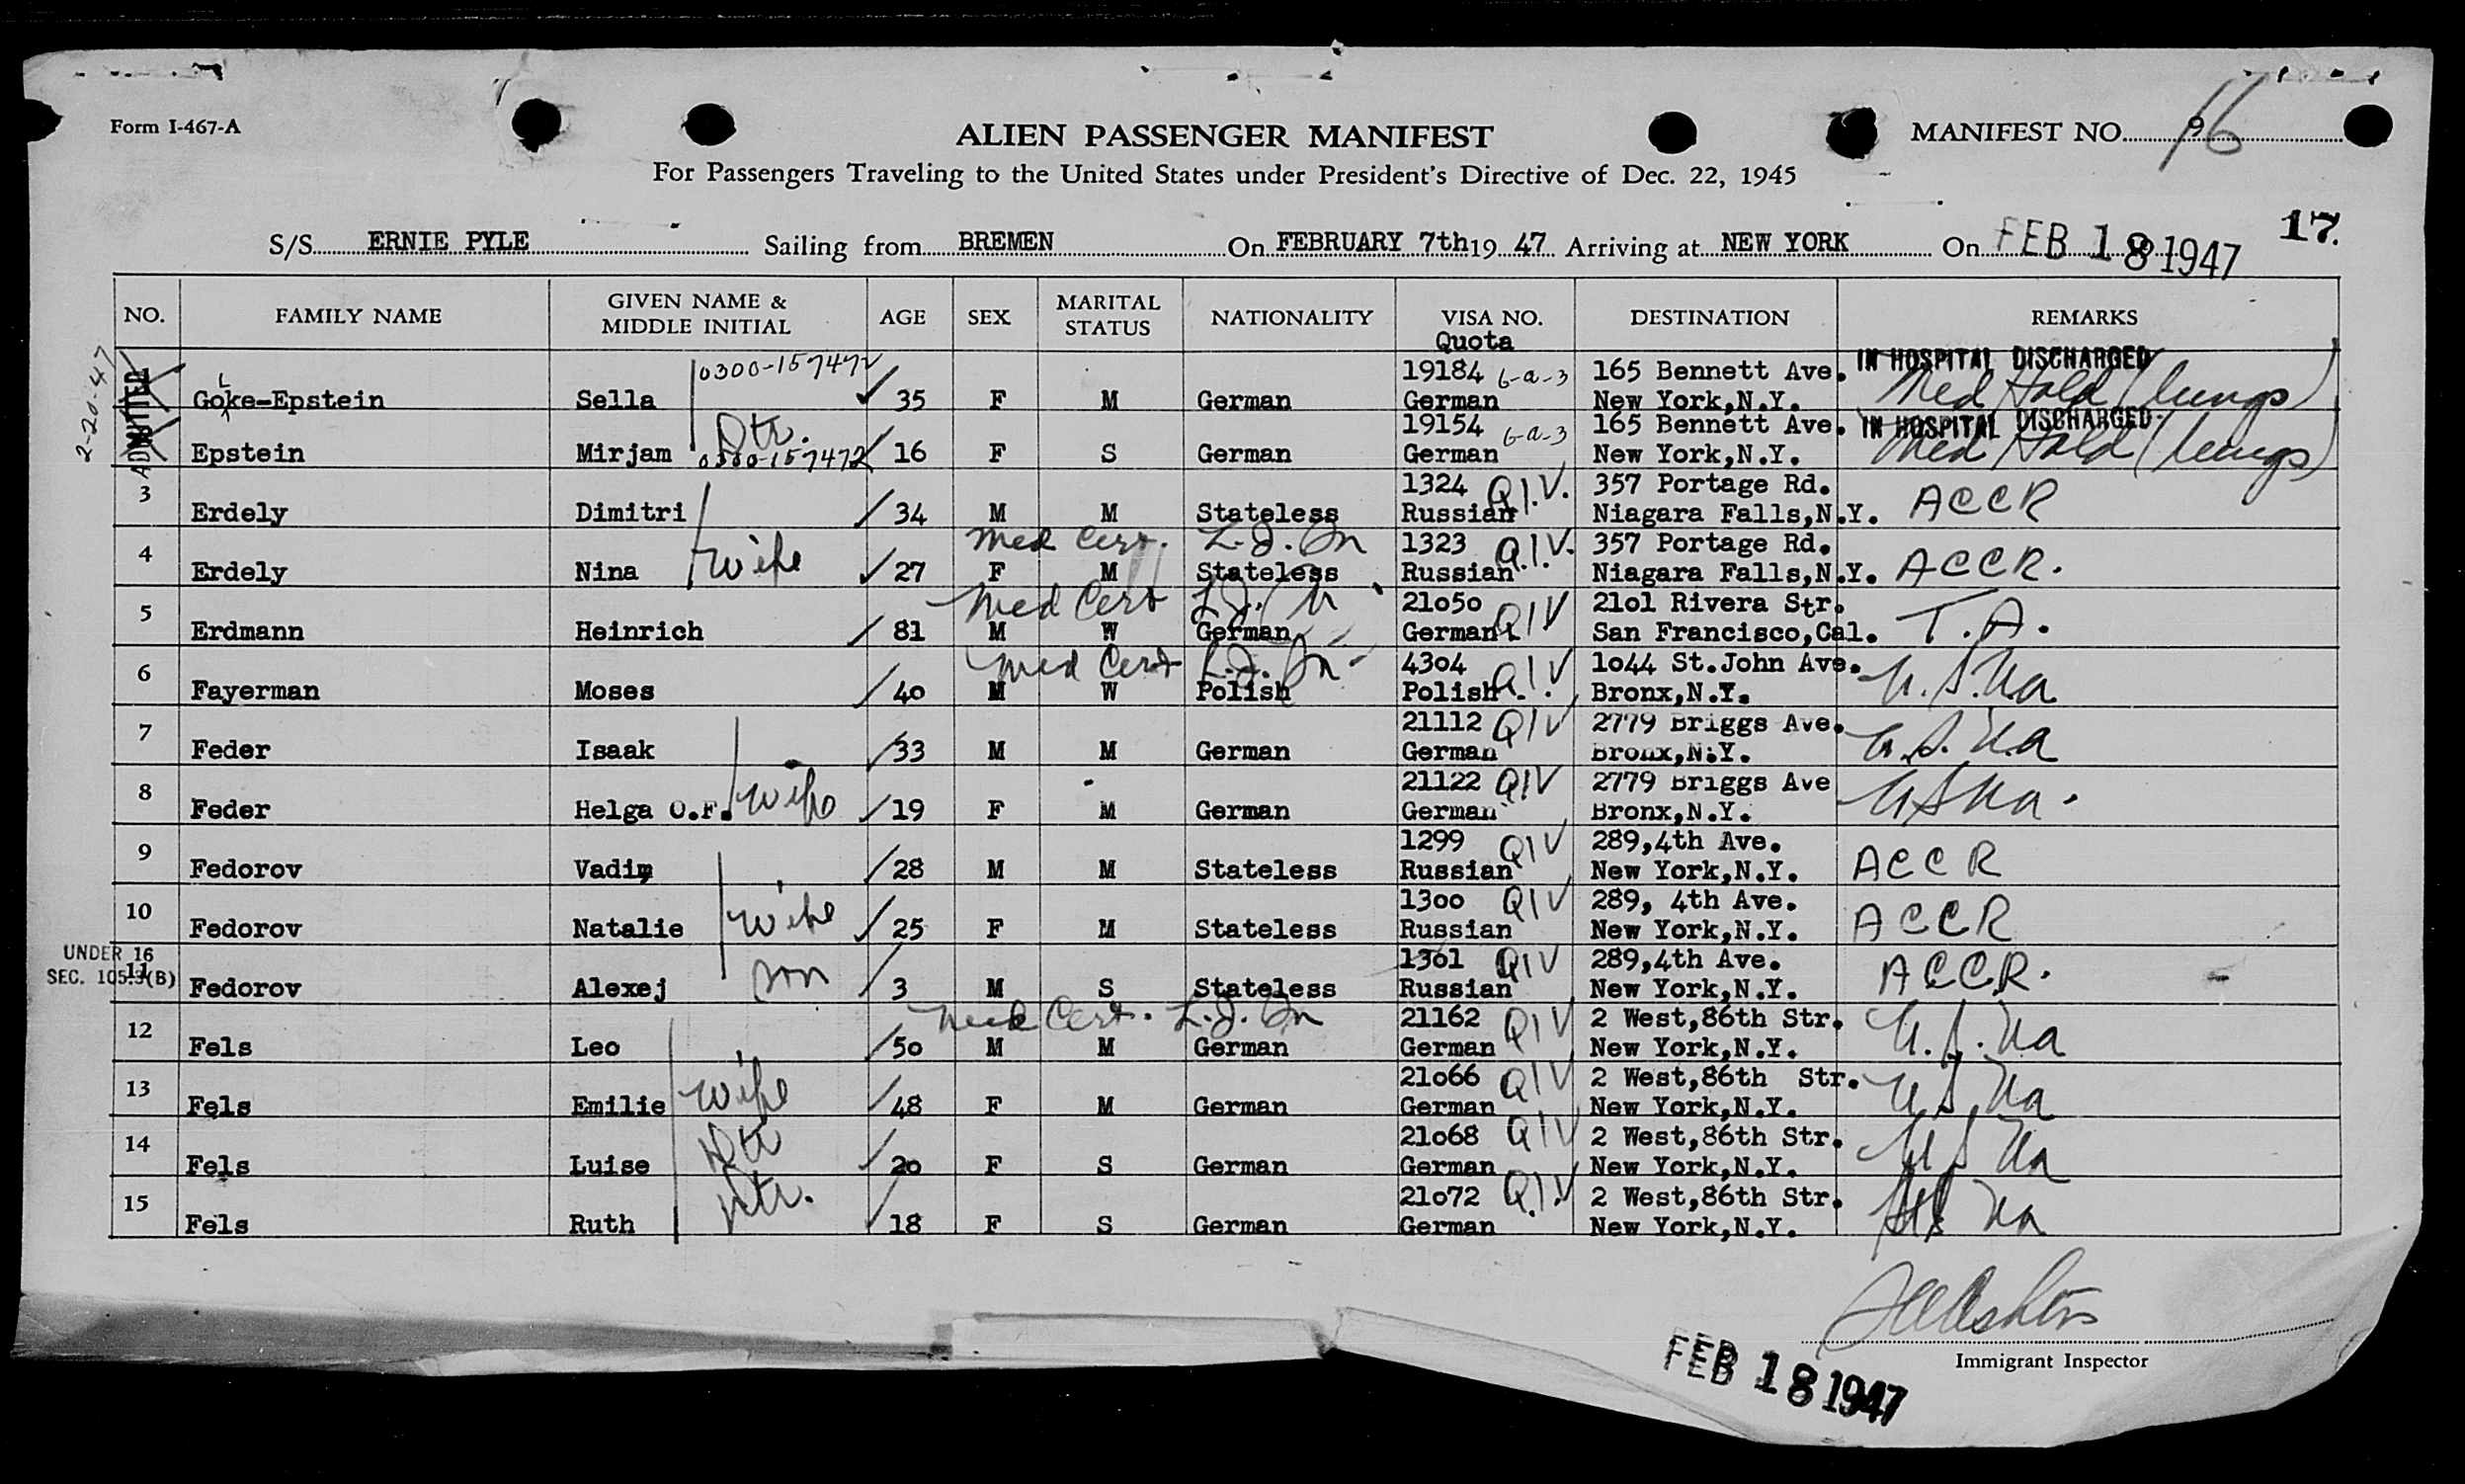 Form I-467-A
ALIEN PASSENGER MANIFEST
MANIFEST NO. 16
For Passengers Traveling to the United States under President's Directive of Dec. 22, 1945
17.
S/S ERNIE PYLE Sailing from BREMEN On FEBRUARY 7th 19 47 Arriving at NEW YORK On FEB 18 1947
NO. FAMILY NAME GIVEN NAME & MIDDLE INITIAL AGE SEX MARITAL STATUS NATIONALITY VISA NO. DESTINATION REMARKS
Quota
2-20-47
ADMITTED
0300-157472 19184 6-a-3 165 Bennett Ave. IN HOSPITAL DISCHARGED
Goke-Epstein Sella 35 F M German German New York,N.Y. Med Hold (lungs)
L
Dtr. 19154 6-a-3 165 Bennett Ave. IN HOSPITAL DISCHARGED
Epstein Mirjam 0300-157472 16 F S German German New York,N.Y. Med Hold (lungs)
3 1324 Q.I.V. 357 Portage Rd.
Erdely Dimitri 34 M M Stateless Russian Niagara Falls,N.Y. ACCR
4 Med Cert. 1323 Q.I.V. 357 Portage Rd.
Erdely Nina wife 27 F M Stateless Russian Niagara Falls,N.Y. ACCR.
5 Med Cert 21050 QIV 2101 Rivera Str.
Erdmann Heinrich 81 M W German German San Francisco,Cal. T.A.
6 Med Cert 4304 QIV 1044 St.John Ave.
Fayerman Moses 40 M W Polish Polish Bronx,N.Y. U.S.Na
7 21112 QIV 2779 Briggs Ave.
Feder Isaak 33 M M German German Bronx,N.Y. U.S.Na
8 21122 QIV 2779 Briggs Ave
Feder Helga O.F. wife 19 F M German German Bronx,N.Y. USNa.
9 1299 QIV 289,4th Ave.
Fedorov Vadim 28 M M Stateless Russian New York,N.Y. ACCR
10 1300 QIV 289, 4th Ave.
Fedorov Natalie wife 25 F M Stateless Russian New York,N.Y. ACCR
UNDER 16
11 1301 QIV 289,4th Ave.
SEC. 105.3(B)
Fedorov Alexej son 3 M S Stateless Russian New York,N.Y. ACCR.
12 Med Cert. 21162 QIV 2 West,86th Str.
Fels Leo 50 M M German German New York,N.Y. U.S.Na
13 21066 QIV 2 West,86th Str.
Fels Emilie wife 48 F M German German New York,N.Y. U.S.Na
14 21068 QIV 2 West,86th Str.
Fels Luise Dtr 20 F S German German New York,N.Y. US Na
15 21072 Q.I.V 2 West,86th Str.
Fels Ruth Dtr. 18 F S German German New York,N.Y. US Na
Immigrant Inspector
FEB 18 1947